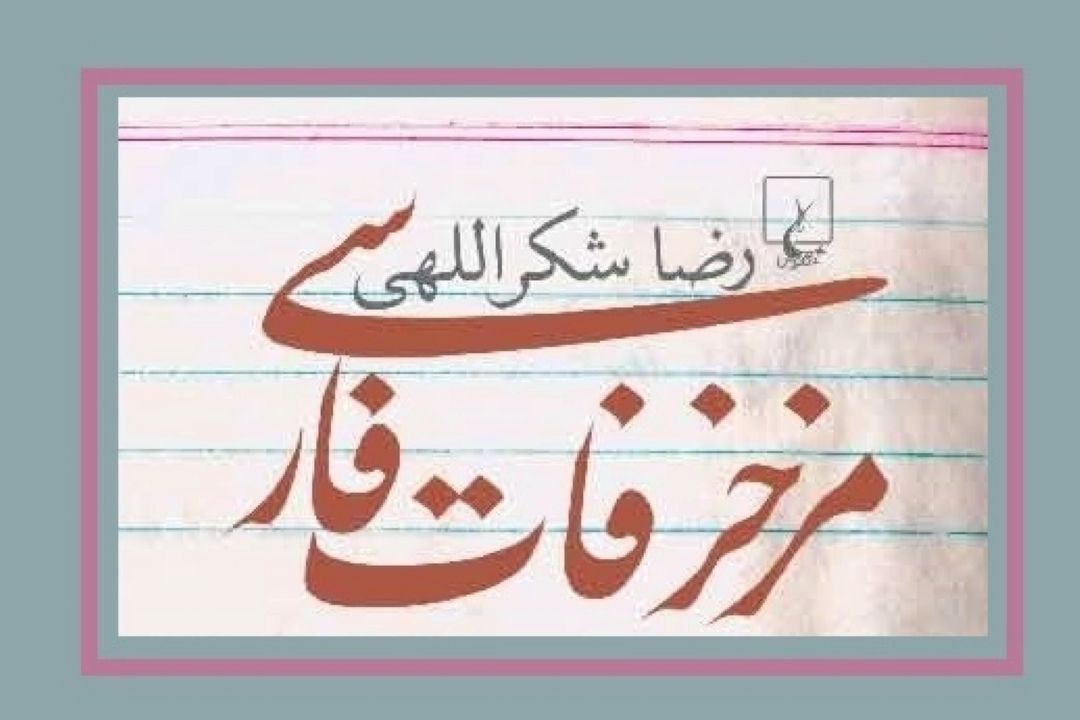 رضا شکراللهی
مزخرفات فارسی